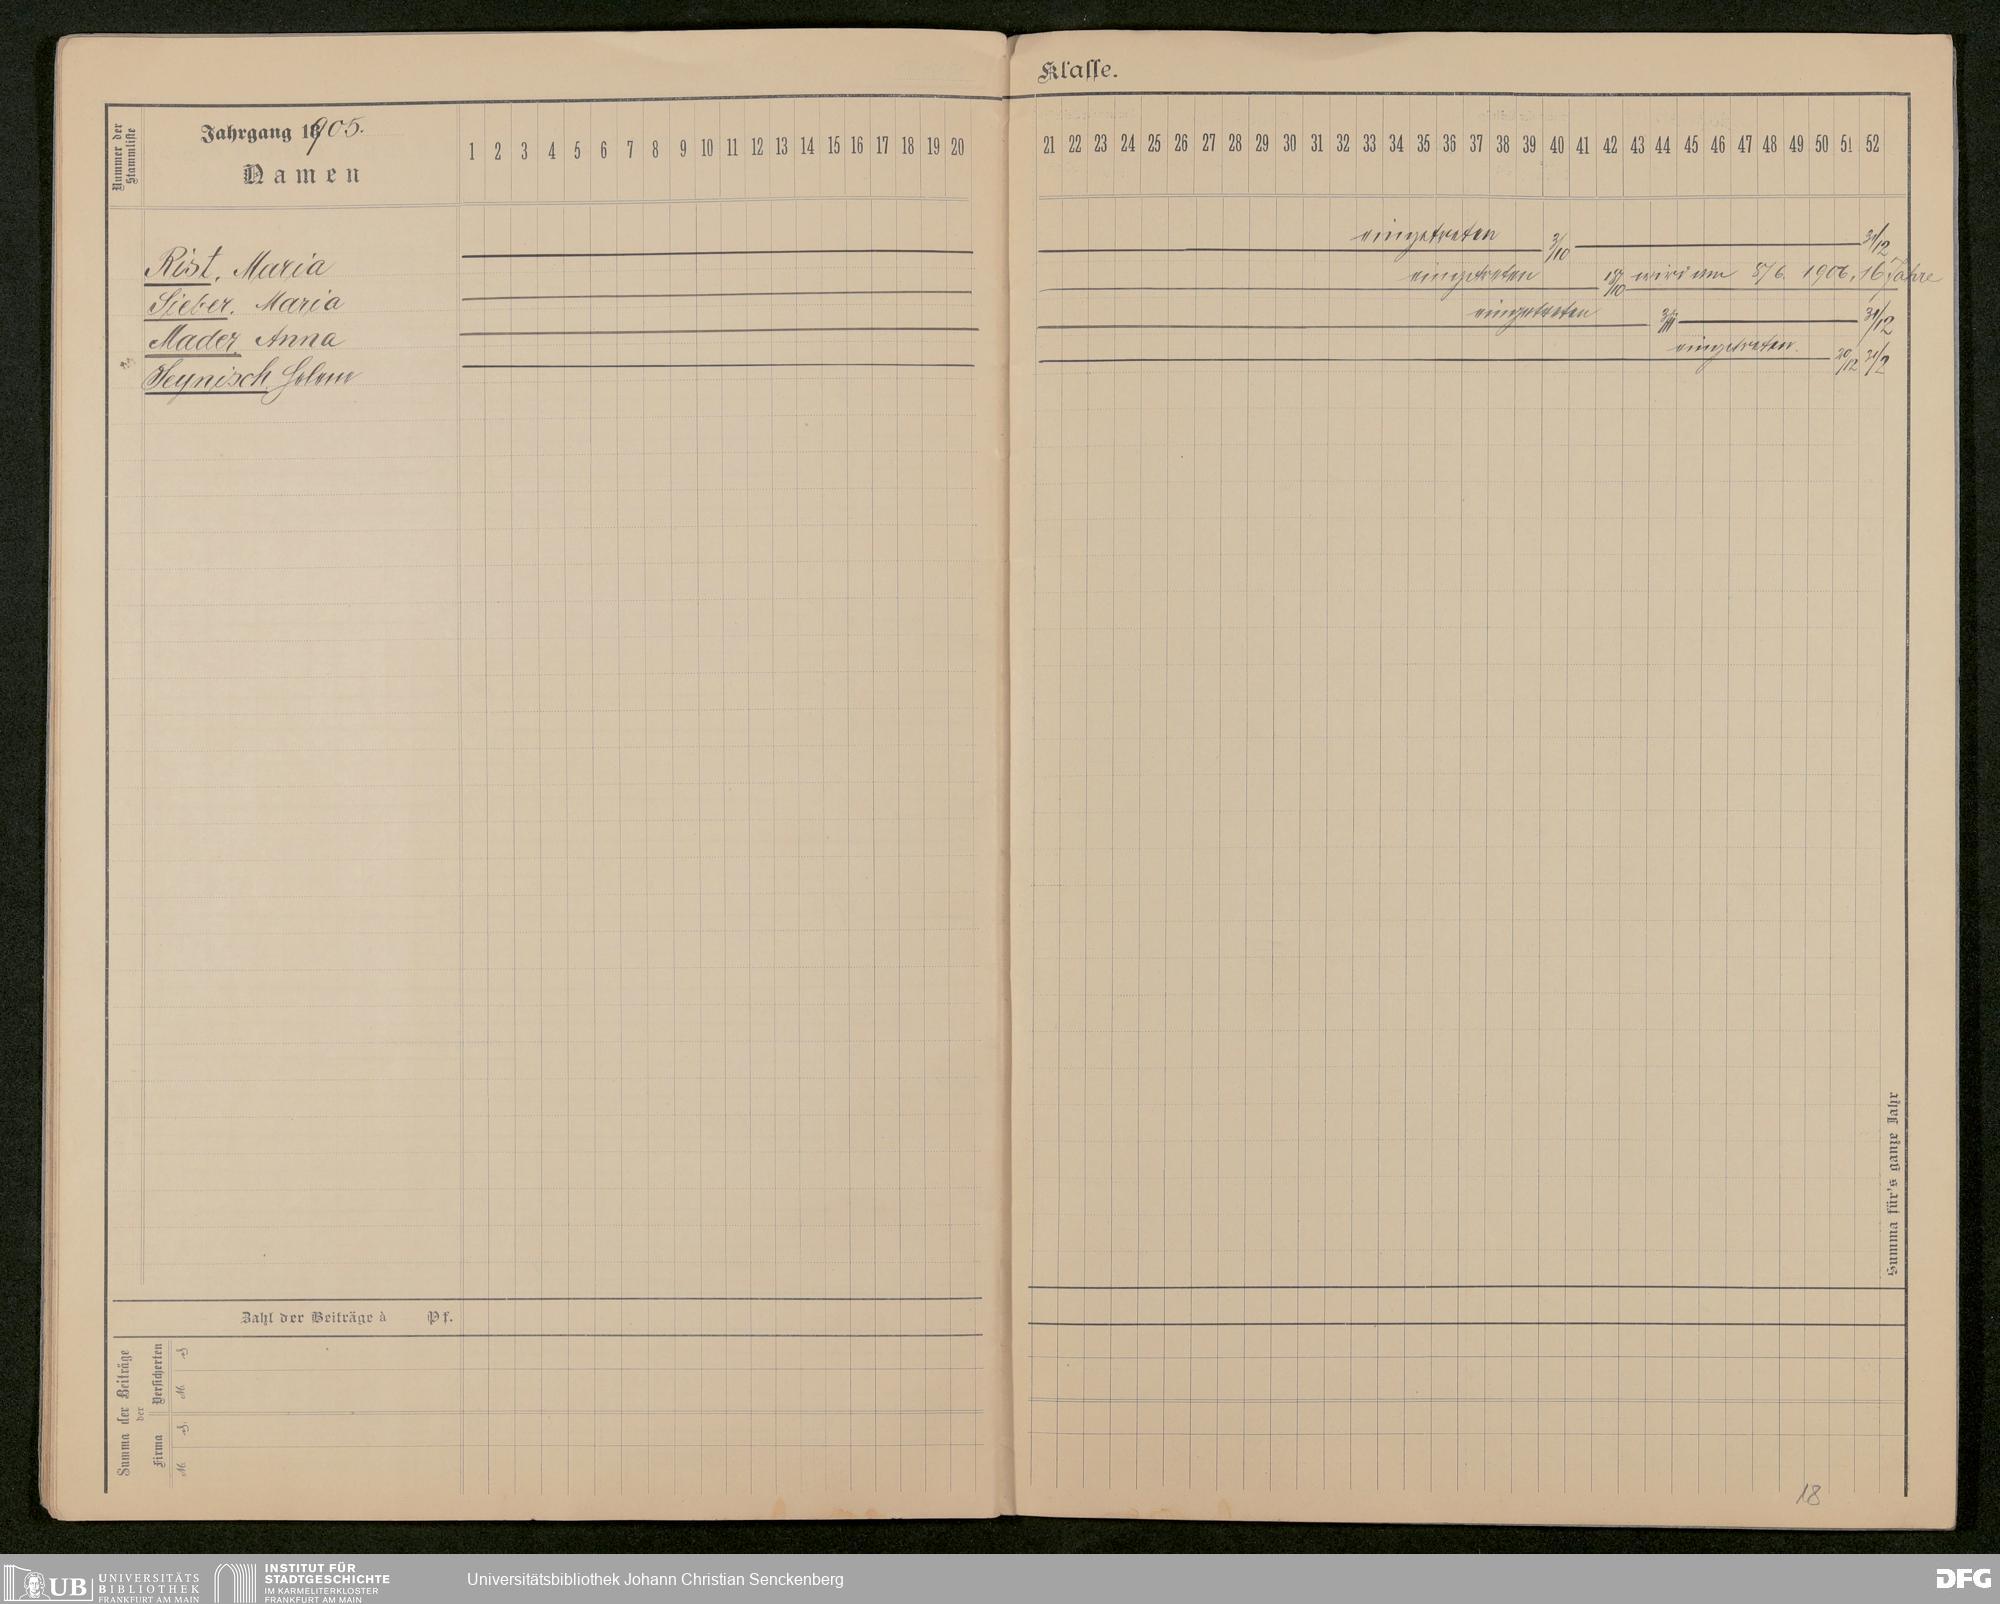 Klasse.
Nummer der
Stammliste
Jahrgang 1905.
Namen
1 2 3 4 5 6 7 8 9 10 11 12 13 14 15 16 17 18 19 20
21 22 23 24 25 26 27 28 29 30 31 32 33 34 35 36 37 38 39 40 41 42 43 44 45 46 47 48 49 50 51 52
Rist, Maria
eingetreten 3/10 31/12
Sieber, Maria
eingetreten /10 wird am 8/6. 1906, 16 Jahre
Mader, Anna
eingetreten 31/12
Heynisch, Helene
eingetreten. 20/12
Summa für's ganze Jahr
Zahl der Beiträge à Pf.
Summa der Beiträge
der
Firma Versicherten
M. M.
18
UB UNIVERSITÄTS
BIBLIOTHEK
FRANKFURT AM MAIN
INSTITUT FÜR
STADTGESCHICHTE
IM KARMELITERKLOSTER
FRANKFURT AM MAIN
Universitätsbibliothek Johann Christian Senckenberg
DFG